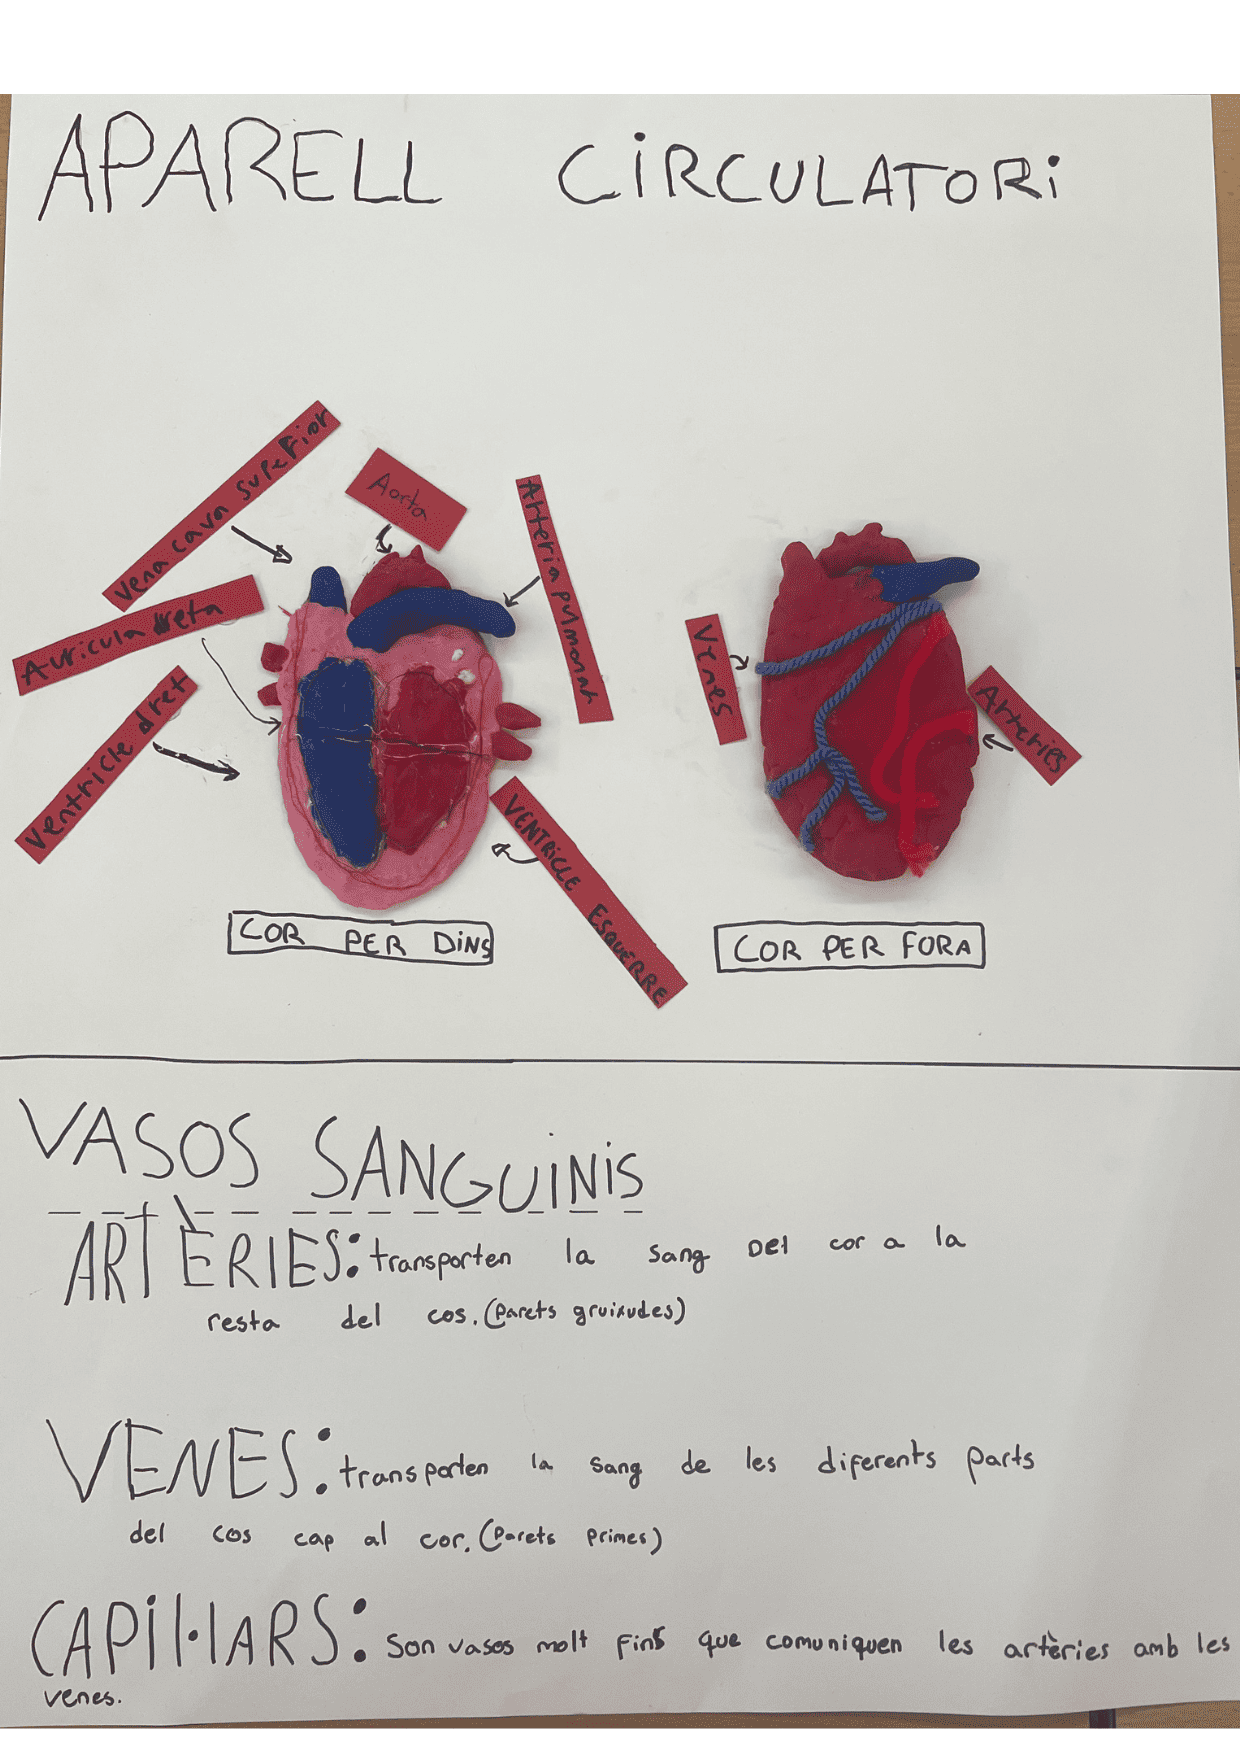 APARELL CIRCULATORI
Vena cava superior
Aorta
Arteria pulmonar
Auricula dreta
Ventricle dret
VENTRICLE ESQUERRE
Venes
Arteries
COR PER DINS
COR PER FORA
VASOS SANGUINIS
ARTÈRIES: transporten la sang Del cor a la
resta del cos. (Parets gruixudes)
VENES: transporten la sang de les diferents parts
del cos cap al cor. (Parets primes)
CAPIL·LARS: Son vasos molt fins que comuniquen les artèries amb les
venes.